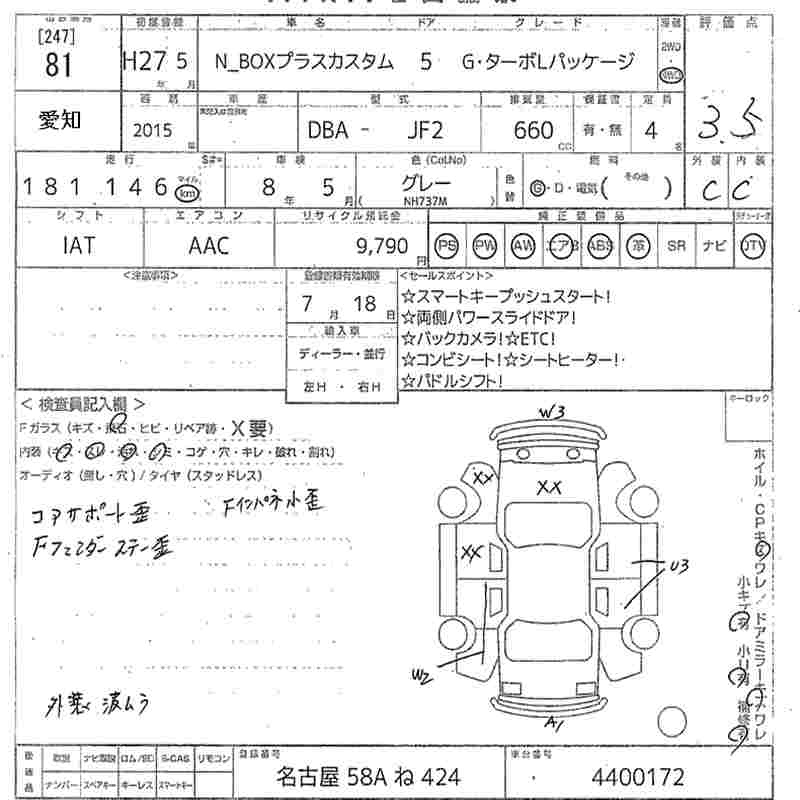 初度登録 車名 ドア グレード 評価点
[247]
81
H27 5 N_BOXプラスカスタム 5 G・ターボLパッケージ 2WD
年 月
愛知
車歴 型式 排気量 保証書 定員
2015 DBA - JF2 660 有・無 4
CC 名
3.5
走行 車検 色(CoLNo) 燃料 外装 内装
181146 マイル km 8 年 5 月 グレー 色替 G・D・電気( その他 ) C C
( NH737M )
シフト エアコン リサイクル預託金 純正装備品
IAT AAC 9,790 円 PS PW AW エアB ABS 革 SR ナビ TV
<注意事項> 登録書類有効期限 <セールスポイント>
7 月 18 日
☆スマートキープッシュスタート!
☆両側パワースライドドア!
☆バックカメラ!☆ETC!
☆コンビシート!☆シートヒーター!
☆パドルシフト!
輸入車
ディーラー・並行
左H ・ 右H
<検査員記入欄>
Fガラス(キズ・飛石・ヒビ・リペア跡・X要)
内装(キズ・スレ・汚れ・シミ・コゲ・穴・キレ・破れ・割れ)
オーディオ(無し・穴)/タイヤ(スタッドレス)
コアサポート歪 Fインパネ小歪
Fフェンダーステー歪
外装 波ムラ
W3
XX XX
XX
U3
W2
A1
キーロック
ホイル・CPキズワレ/ドアミラーキズワレ
小キズ有 小凹有 補修有
後返品 取説 ナビ取説 ロム/SD B-CAS リモコン
ナンバー スペアキー キーレス スマートキー
登録番号 車台番号
名古屋 58A ね 424 4400172